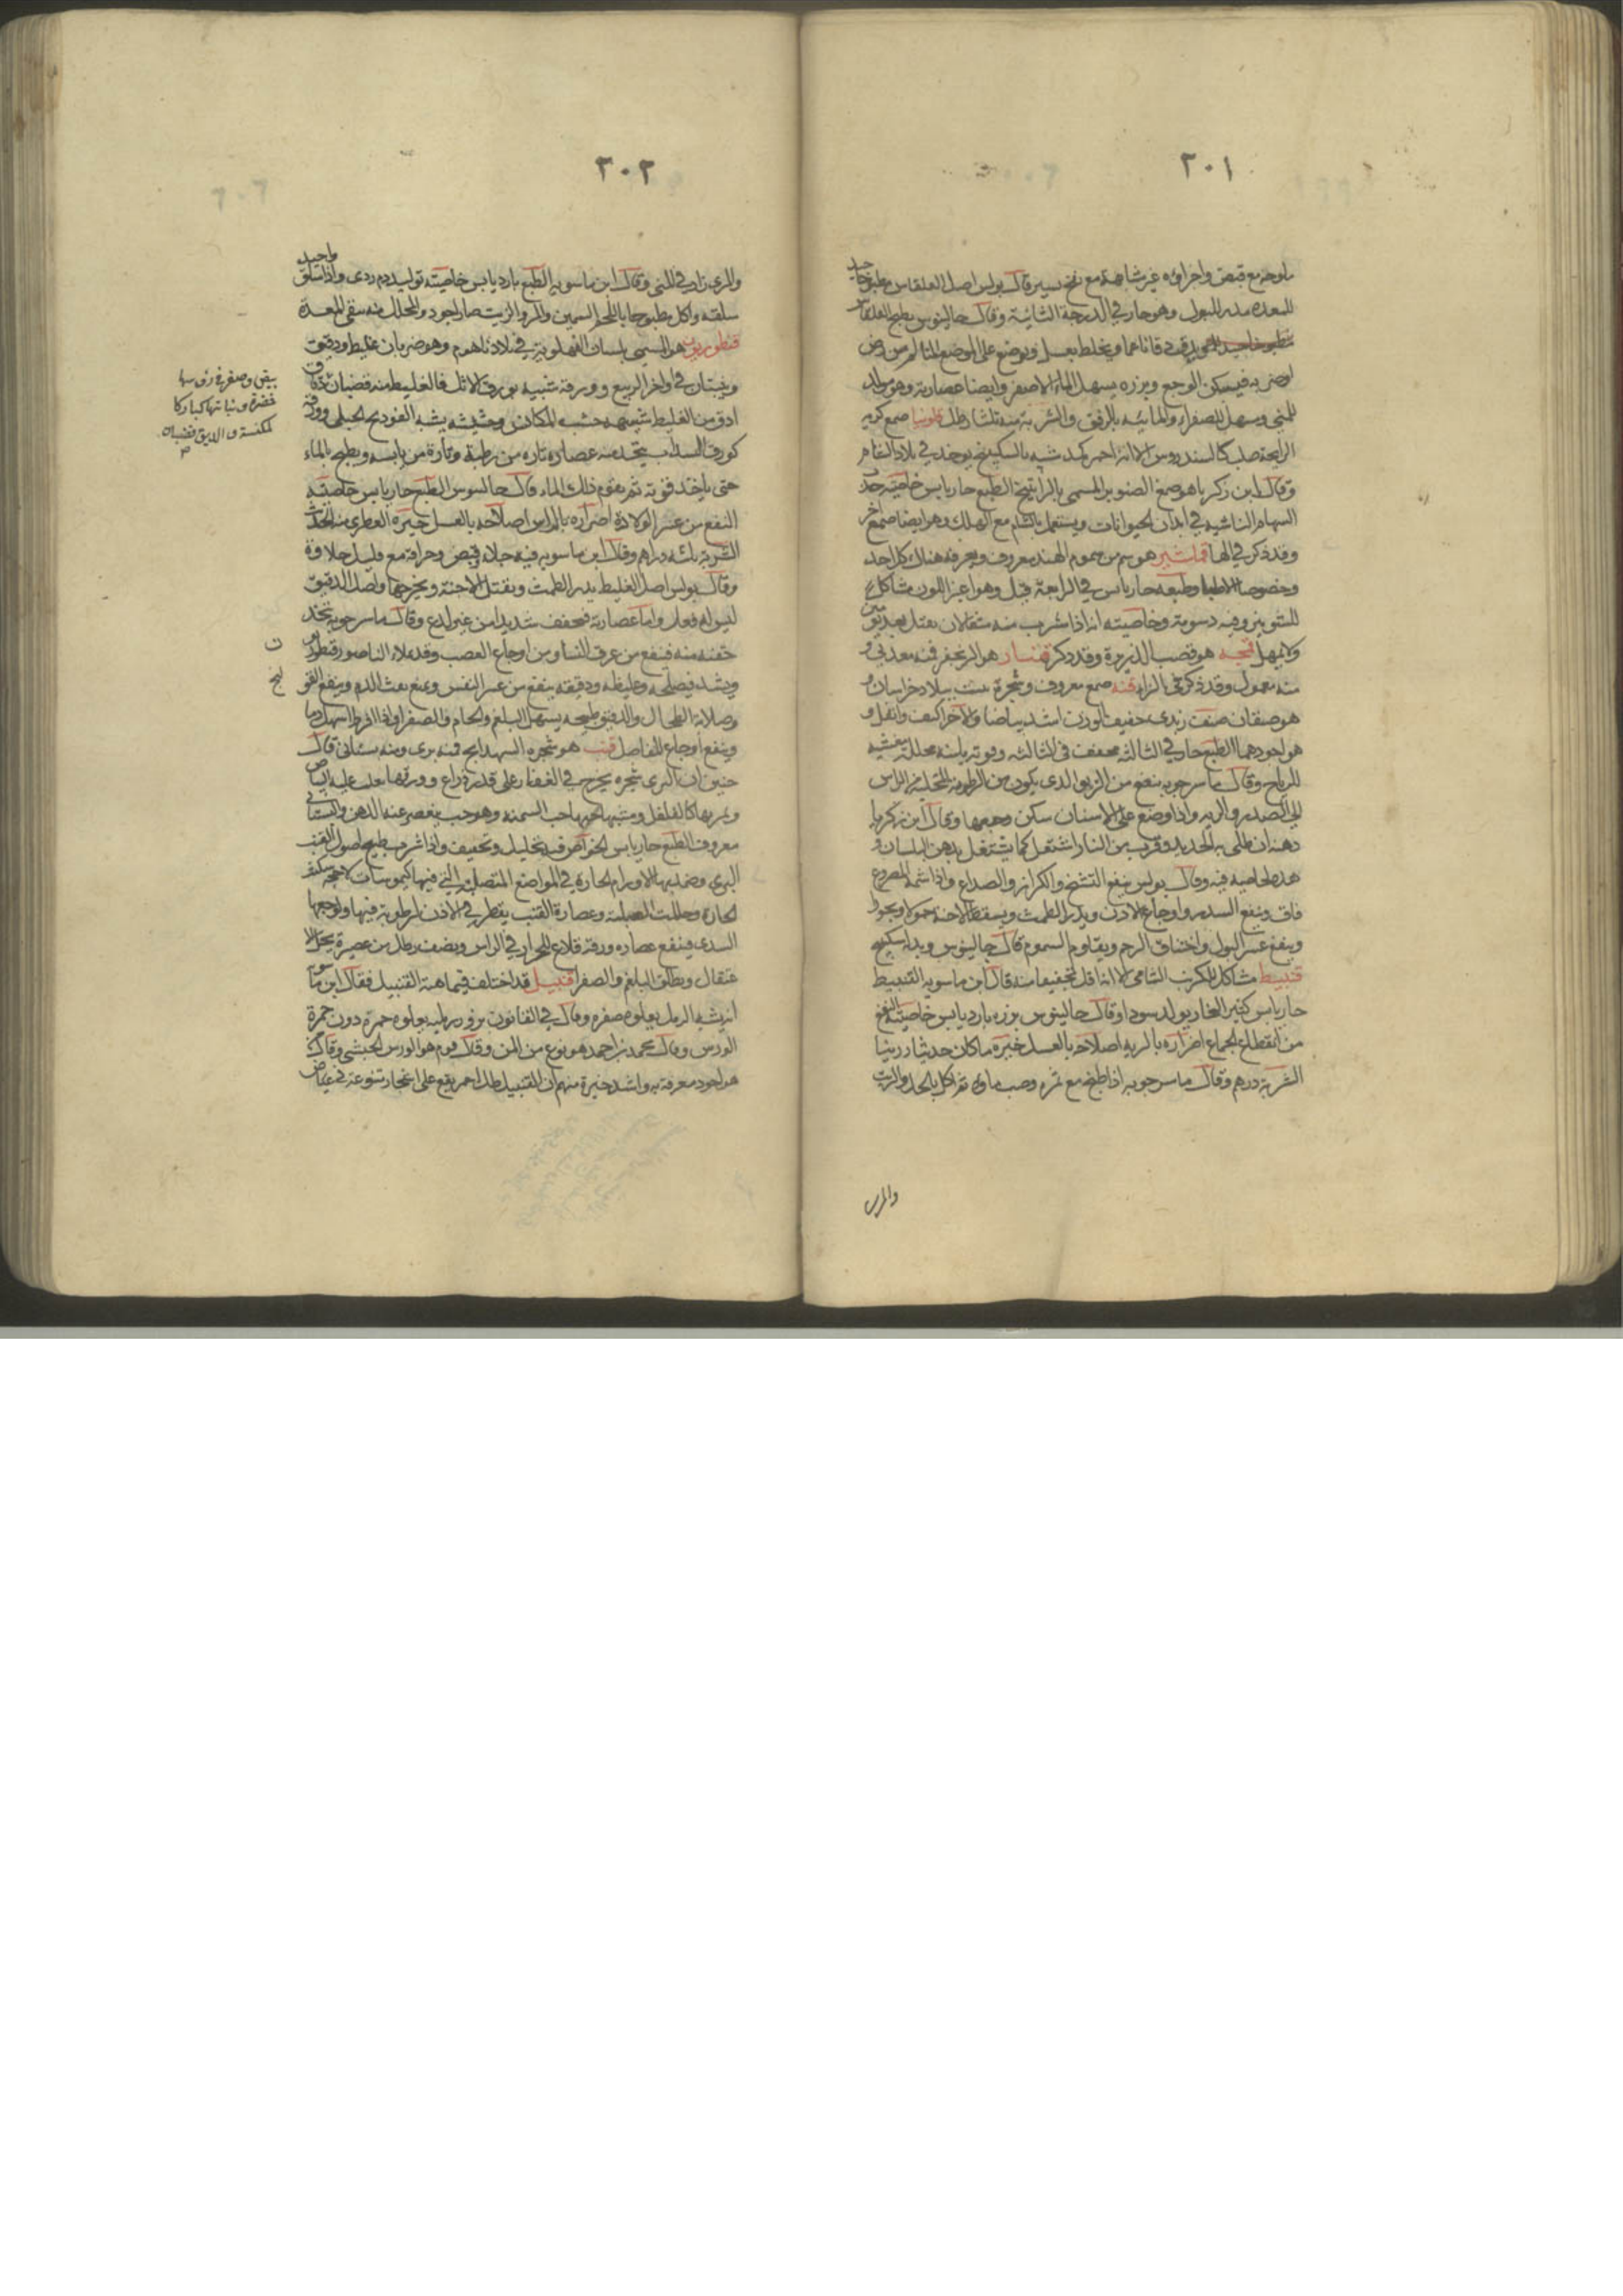 ٣٠١
ملوحة مع قبض واجزاؤه غير متشابهة مع نفخ يسير قال بولس اصل القلقاس مطبوخا جيد
للمعدة مدر للبول وهو حار في الدرجة الثانية وقال جالينوس يطبخ القلقاس
دقا ناعما ويخلط بعسل ويوضع على الموضع المتالم من رض
فيسكن الوجع وبزره يسهل الماء الاصفر وايضا عصارته وهو مولد
للمني ويسهل الصفراء والمائيه بالرفق والشربة منه ثلثا رطل صمغ كريه
الرايحة صلب كالسندروس الا انه احمر كمد شبيه بالسكبينج يوجد في بلاد الشام
وقال ابن زكريا هو صمغ الصنوبر المسمى بالراتينج الطبع حار يابس خاصيته جذب
السهام الناشبه في ابدان الحيوانات ويستعمل بالشام مع الهلك وهو ايضا صمغ آخر
وقد ذكر في الها هو سم من سموم الهند معروف ويعرفه هناك كل احد
وخصوصا الاطبا وطبعه حار يابس في الرابعة قيل وهو اغبر اللون مشاكل
للشونيز وفيه دسومة وخاصيته انه اذا شرب منه مثقالان يقتل بعد يومين
ولا يمهل قمحه هو قصب الذريرة وقد ذكر هو الزنجفر فمنه معدني و
منه معمول وقد ذكر في الزاء قنه صمغ معروف وشجرة تنبت ببلاد خراسان و
هو صنفان صنف زبدي خفيف الوزن اشد بياضا والآخر اكثف واثقل و
هو اجودهما الطبع حار في الثالثه مجفف في الثالثه وقوته يابسة محللة
للرياح وقال ماسرجويه ينفع من الربو الذي يكون من الرطوبة المتحلبة من الراس
الى الصدر والريه واذا وضع على الاسنان سكن وجعها وقال ابن زكريا
دهنه ان طلي به الحديد وقرب من النار اشتعل كما يشتعل بدهن البلسان و
هذه الخاصيه فيه وقال بولس ينفع التشنج والكزاز والصداع واذا شمه المصروع
فاق وينفع السدر واوجاع الاذن ويدر الطمث ويسقط الاجنة حمولا وبخورا
وينفع عسر البول واختناق الرحم ويقاوم السموم قال جالينوس وبدله سكبينج
قنبيط مشاكل للكرنب الشامي الا انه اقل تجفيفا منه قال ابن ماسويه القنبيط
حار يابس كثير البخار يولد سودا وقال جالينوس بزره بارد يابس خاصيته النفع
من انقطاع الجماع اضراره بالريه اصلاحه بالعسل خيره ما كان حديثا رزينا
الشربة درهم وقال ماسرجويه اذا طبخ مع ثمره وصب ماؤه ثم اكل بالخل والزيت
والمرى
٣٠٢
والمرى زاد في المني وقال ابن ماسويه الطبع بارد يابس خاصيته توليد دم ردى واذا سلق واجيد
سلقه واكل مطبوخا باللحم السمين والمرى والزيت صار اجود والمخلل منه يقي للمعدة
قنطوريون هو المسمى بلسان الفهلوية في بلادنا هوم وهو ضربان غليظ ودقيق
وينبتان في اواخر الربيع وورقه شبيه بورق الاثل فالغليظ منه قضبان
ادق من الغليظ وحشيشه يشبه الفودنج الجبلي وورقه
كورق السداب يتخذ منه عصاره تاره من رطبه وتارة من يابسه ويطبخ بالماء
حتى ياخذ قوته ثم يقوم ذلك الماء قال جالينوس الطبع حار يابس خاصيته
النفع من عسر الولادة اضراره بالراس اصلاحه بالعسل خيره العطرى منه الحديث
الشربة ثلثه دراهم وقال ابن ماسويه فيه جلاء وقبض وحرافة مع قليل حلاوة
وقال بولس اصل الغليظ يدر الطمث ويقتل الاجنة ويخرجها واصل الدقيق
ليس له فعل واما عصارته فمجفف شديدا من غير لذع وقال ماسرجويه يتخذ
حقنه منه فينفع من عرق النسا ومن اوجاع العصب وقد يملاء الناصور
ويشد فيصلحه وغليظه ودقيقه ينفع من عسر النفس ويمنع نفث الدم وينفع القولنج
وصلابة الطحال والدقيق طبيخه يسهل البلغم والخام والصفرا واذا افرط اسهل دما
وينفع اوجاع المفاصل قنب هو شجره الشهدانج فمنه بري ومنه بستاني قال
حنين ان البرى شجره يخرج في القفار على قدر ذراع وورقها يغلب عليه البياض
وثمرها كالفلفل ويشبهها حب السمنه وهو حب يعصر عنه الدهن والبستاني
معروف الطبع حار يابس الخواص فيه تحليل وتجفيف واذا شرب طبيخ اصول القنب
البري وضمد بها الاورام الحارة في المواضع المتصلبة التي فيها كيموسات لاحجه سكنت
الحارة وحللت الصلبة وعصارة القنب يقطر في الاذن لرطوبة فيها ولوجعها
السدى فينفع عصاره ورقه قلاع للحرار في الراس ونصف رطل من عصيره يحل الا
عتقال ويطلق البلغم والصفرا قنبيل قد اختلف في ماهية القنبيل فقال ابن ماسويه
انه يشبه الرمل يعلوه صفره وقال في القانون بزور رملية يعلوه حمرة دون حمرة
الورس وقال محمد بن احمد هو نوع من المن وقال قوم هو الورس الحبشي وقال
هو اجود معرفة به واشد خبرة منهم ان القنبيل طل احمر يقع على اشجار متنوعة في غياض
بيض وصفر في رؤسها
خضرة ونباتها كباركا
لمكنسة والدقيق قضبان